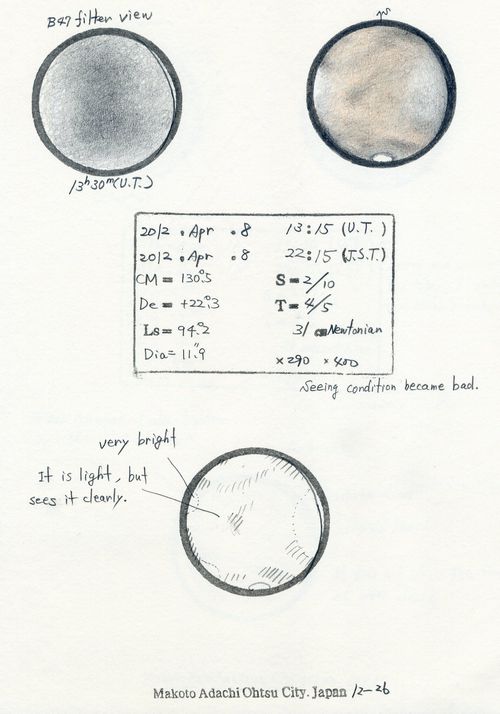 B47 filter view
N
13ʰ30ᵐ(U.T.)
2012 . Apr . 8 13:15 (U.T.)
2012 . Apr . 8 22:15 (J.S.T.)
CM = 130.°5 S = 2/10
De = +22.°3 T = 4/5
Ls = 94.°2 31 cm Newtonian
Dia = 11."9 ×290 ×400
Seeing condition became bad.
very bright
It is light, but
sees it clearly.
Makoto Adachi Ohtsu City. Japan 12-26